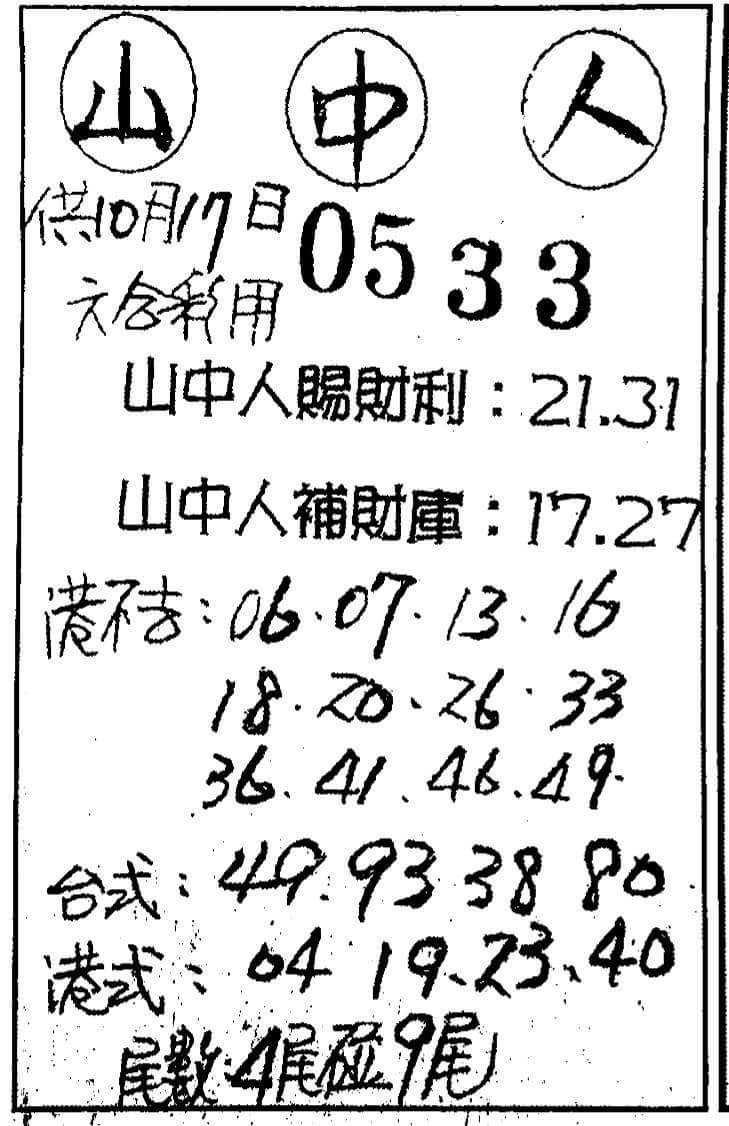 山中人
供10月17日 0533
六合彩用
山中人賜財利：21.31
山中人補財庫：17.27
港不去：06.07.13.16
18.20.26.33
36.41.46.49.
台式：49.93 38 80
港式：04 19.23.40
尾數：4尾碰9尾